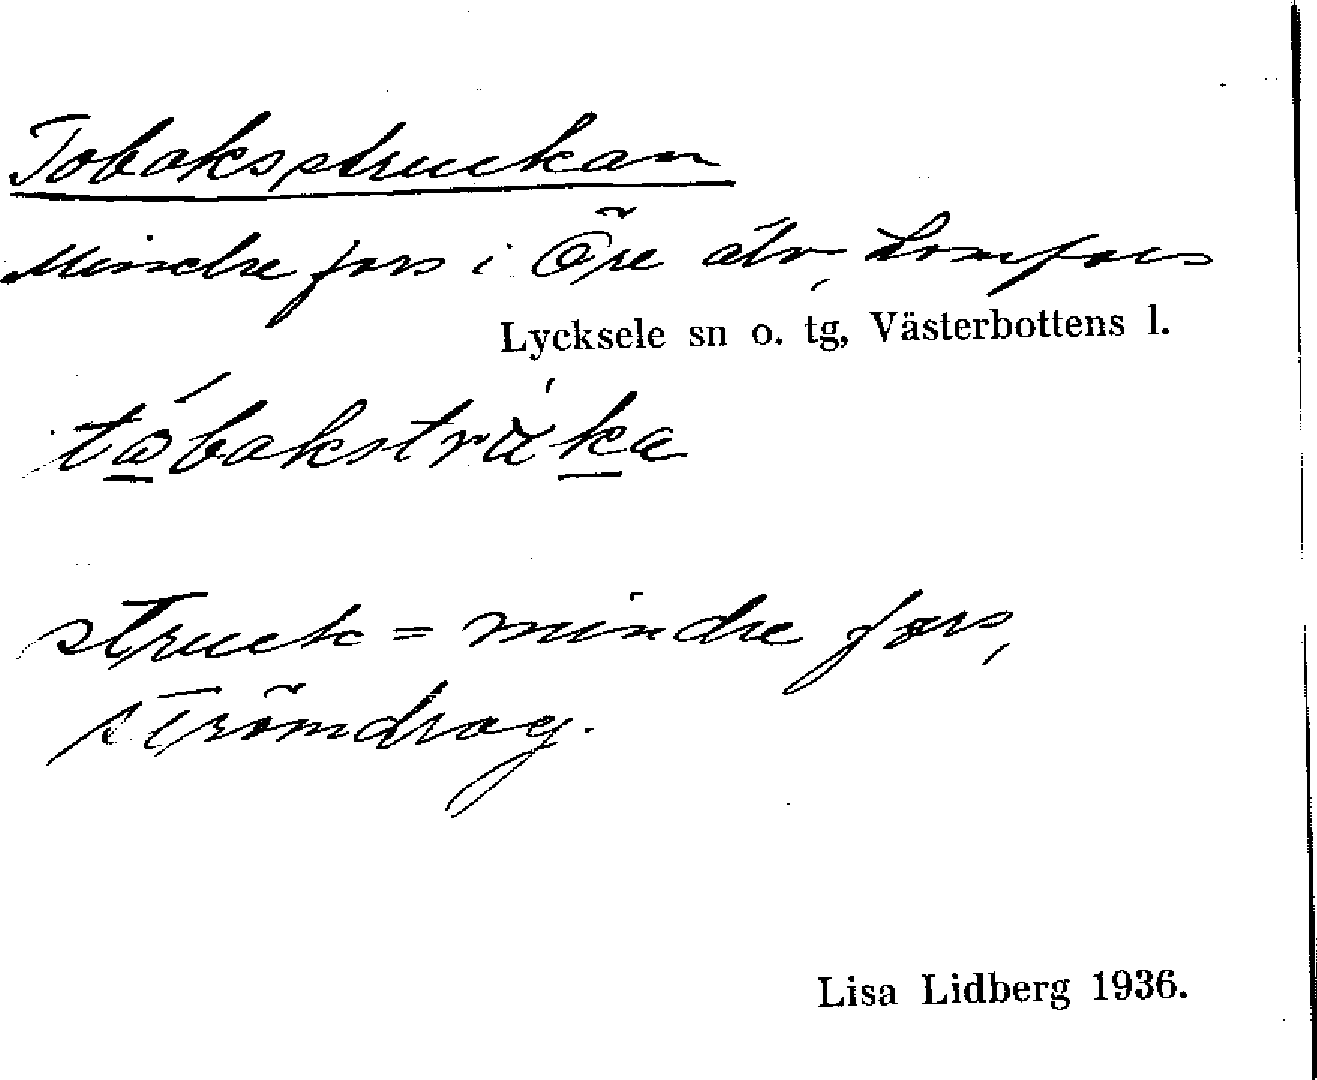 Tobaksstruckan
Mindre fors i Öre älv, Lomfors
Lycksele sn o. tg, Västerbottens l.
struck = mindre fors,
strömdrag.
Lisa Lidberg 1936.